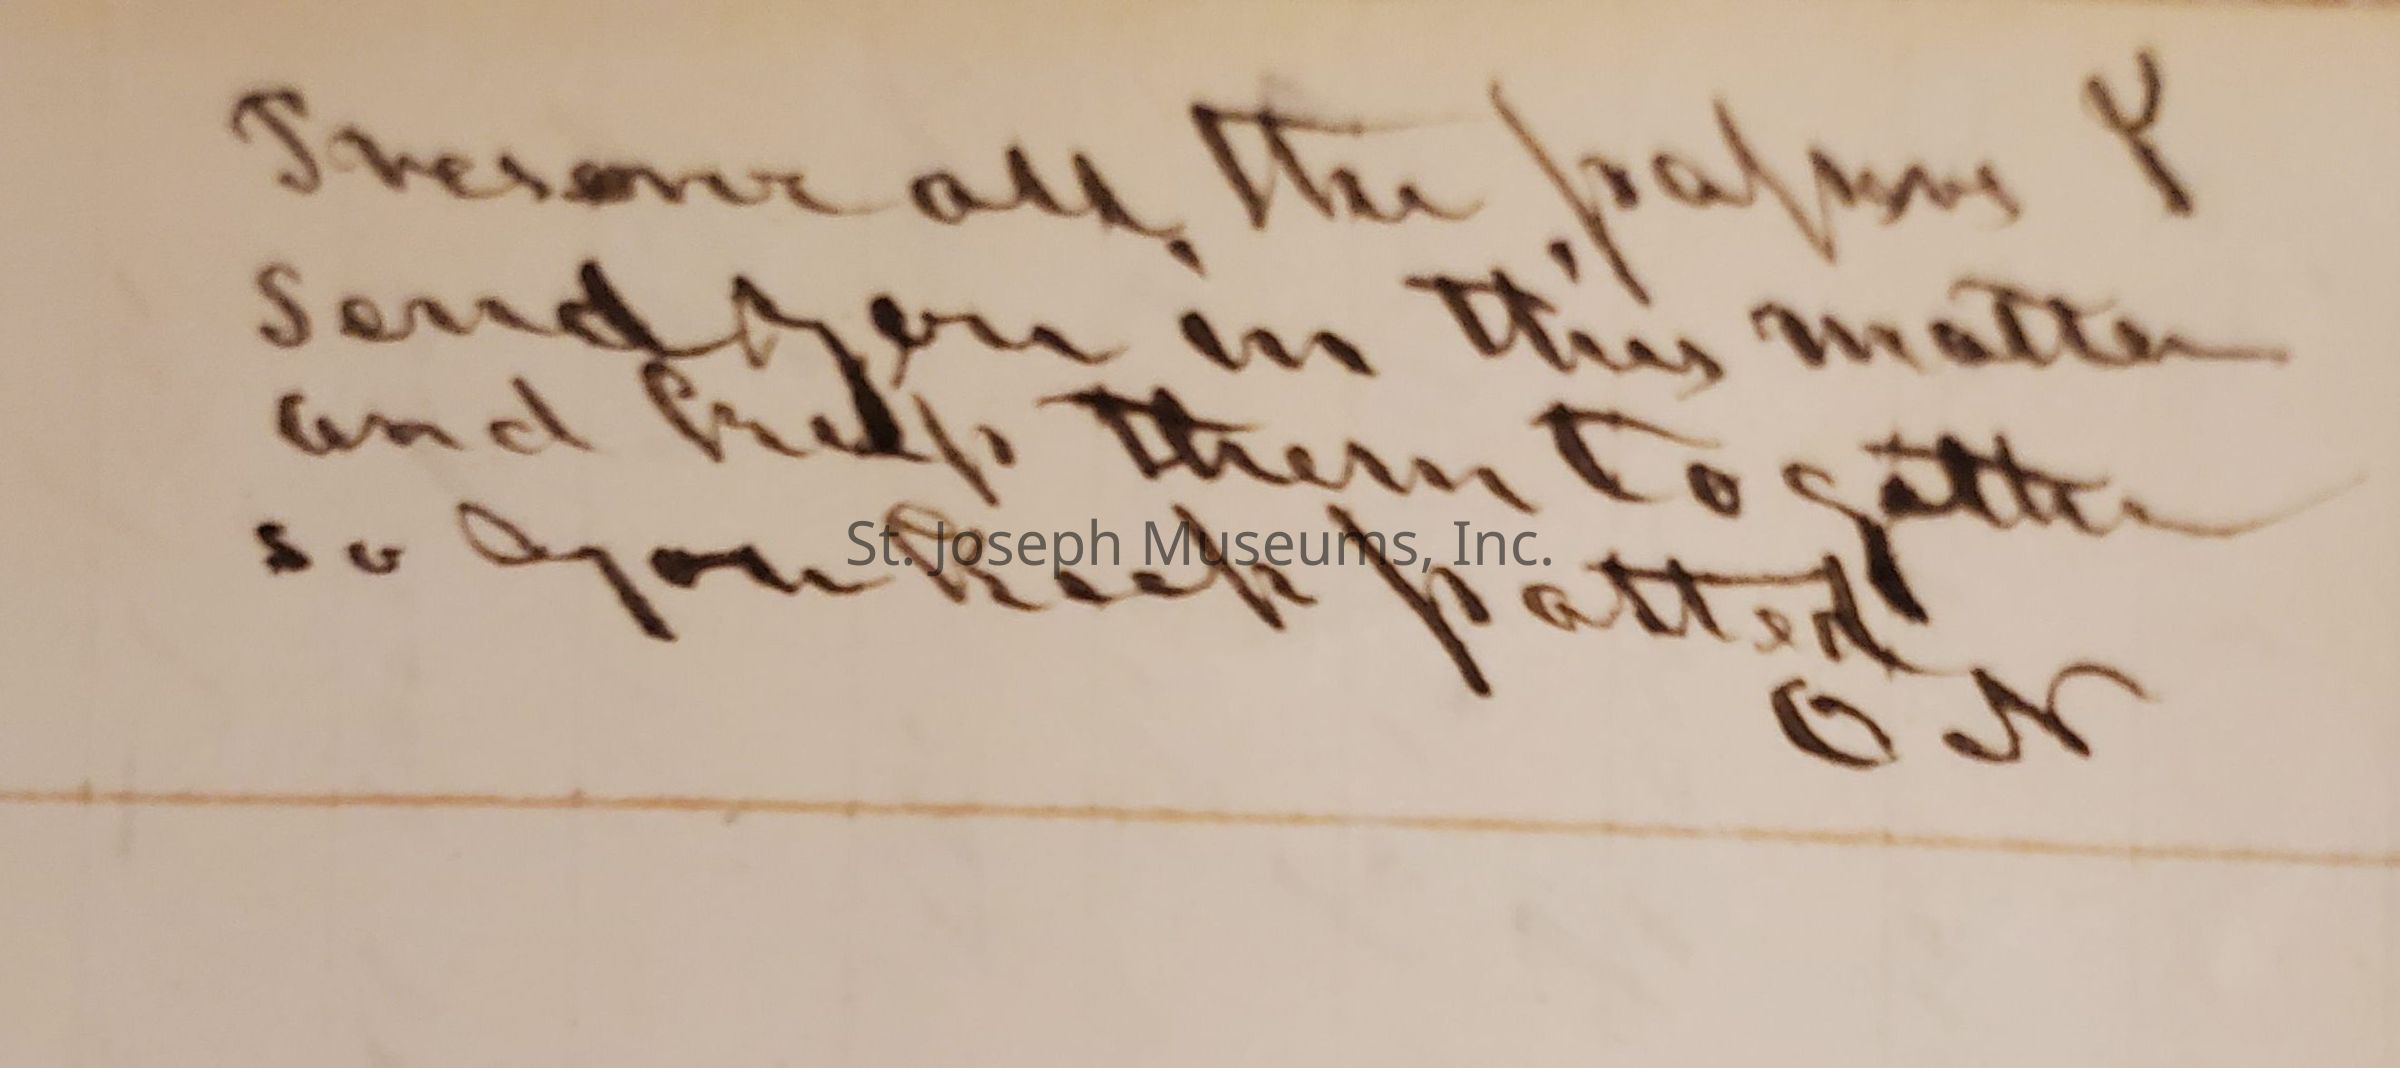 Preserve all the papers I
send you in this matter
and keep them together
so you keep posted
O N
St. Joseph Museums, Inc.